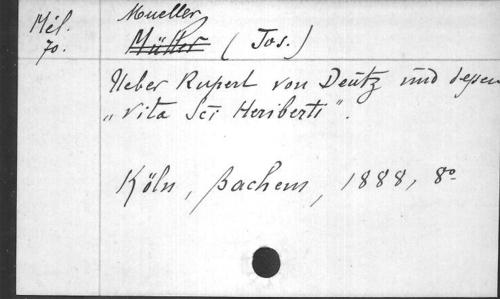 Mél.
70.
Mueller
Müller (Jos.)
Ueber Rupert von Deutz und dessen
„Vita Sci Heriberti".
Köln, Bachem, 1888, 8°